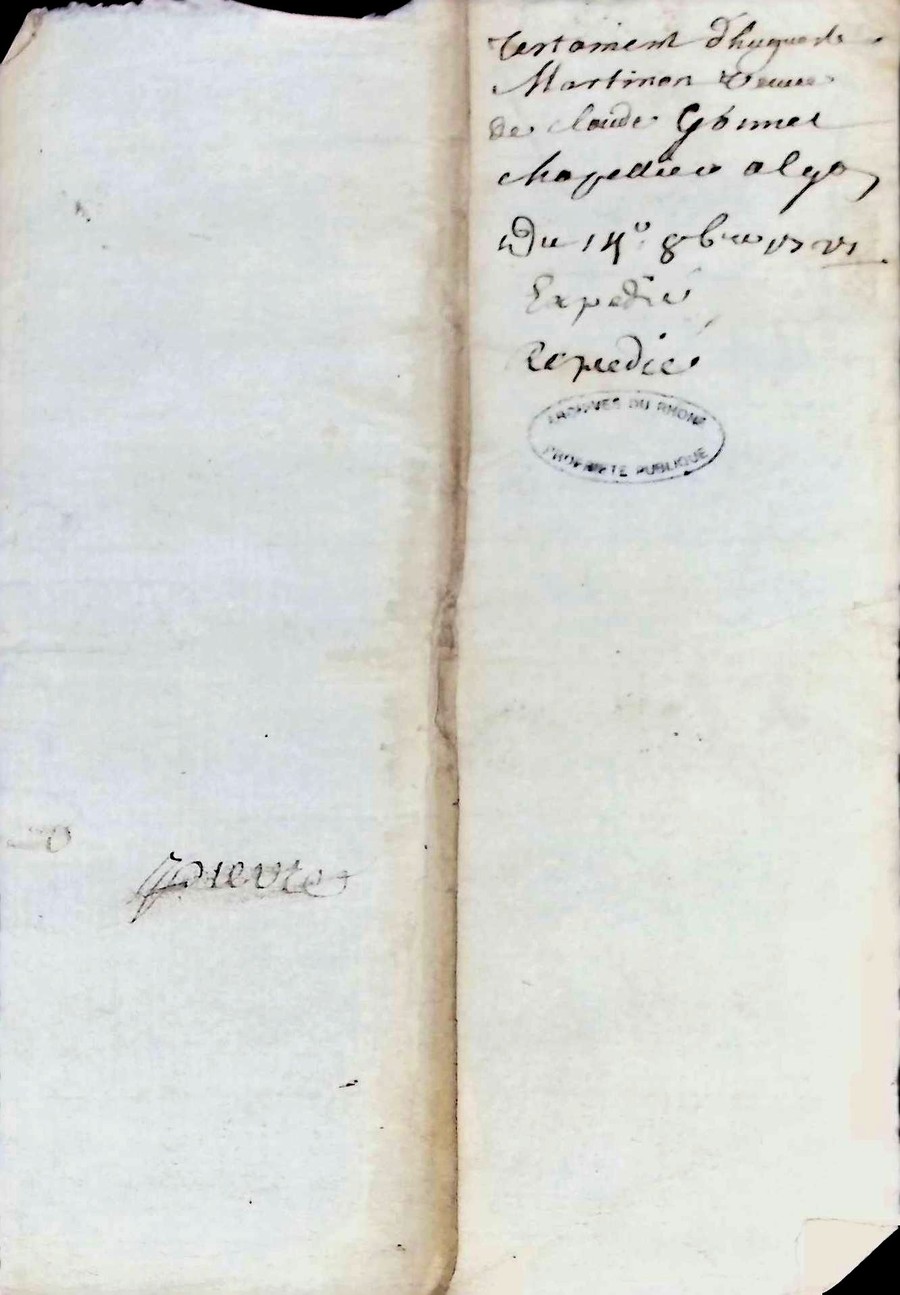 Testament d'huguette
Martinon veuve
de Claude Gonnet
chapellier a lyo
Du 14e 8bre 1721
Expedié
Expedié
ARCHIVES DU RHONE
PROPRIETE PUBLIQUE